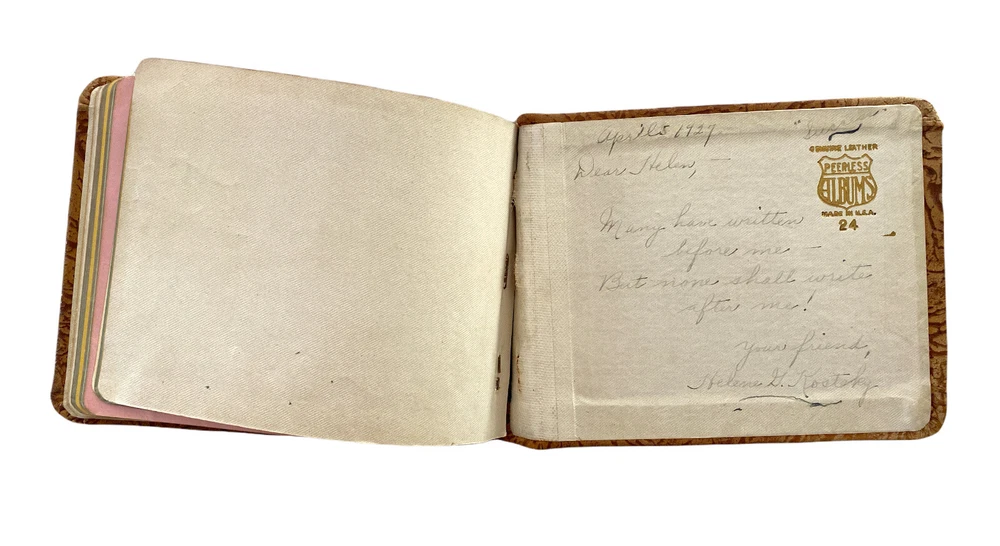 April 5 1927
GENUINE LEATHER
PEERLESS
ALBUMS
MADE IN U.S.A.
24
Dear Helen, —
Many have written
before me —
But none shall write
after me!
Your friend,
Helene G. Kostsky